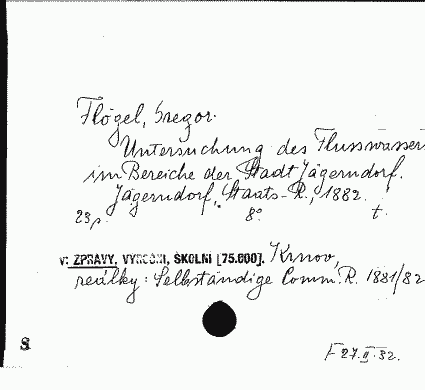 Flögel, Gregor.
Untersuchung des Flusswassers
im Bereiche der Stadt Jägerndorf.
Jägerndorf, Staats-R., 1882.
23 p. 8° t.
v: ZPRÁVY, VÝROČNÍ, ŠKOLNÍ [75.000]. Krnov,
reálky: Selbständige Comm. R. 1881/82
F 27.II.32.